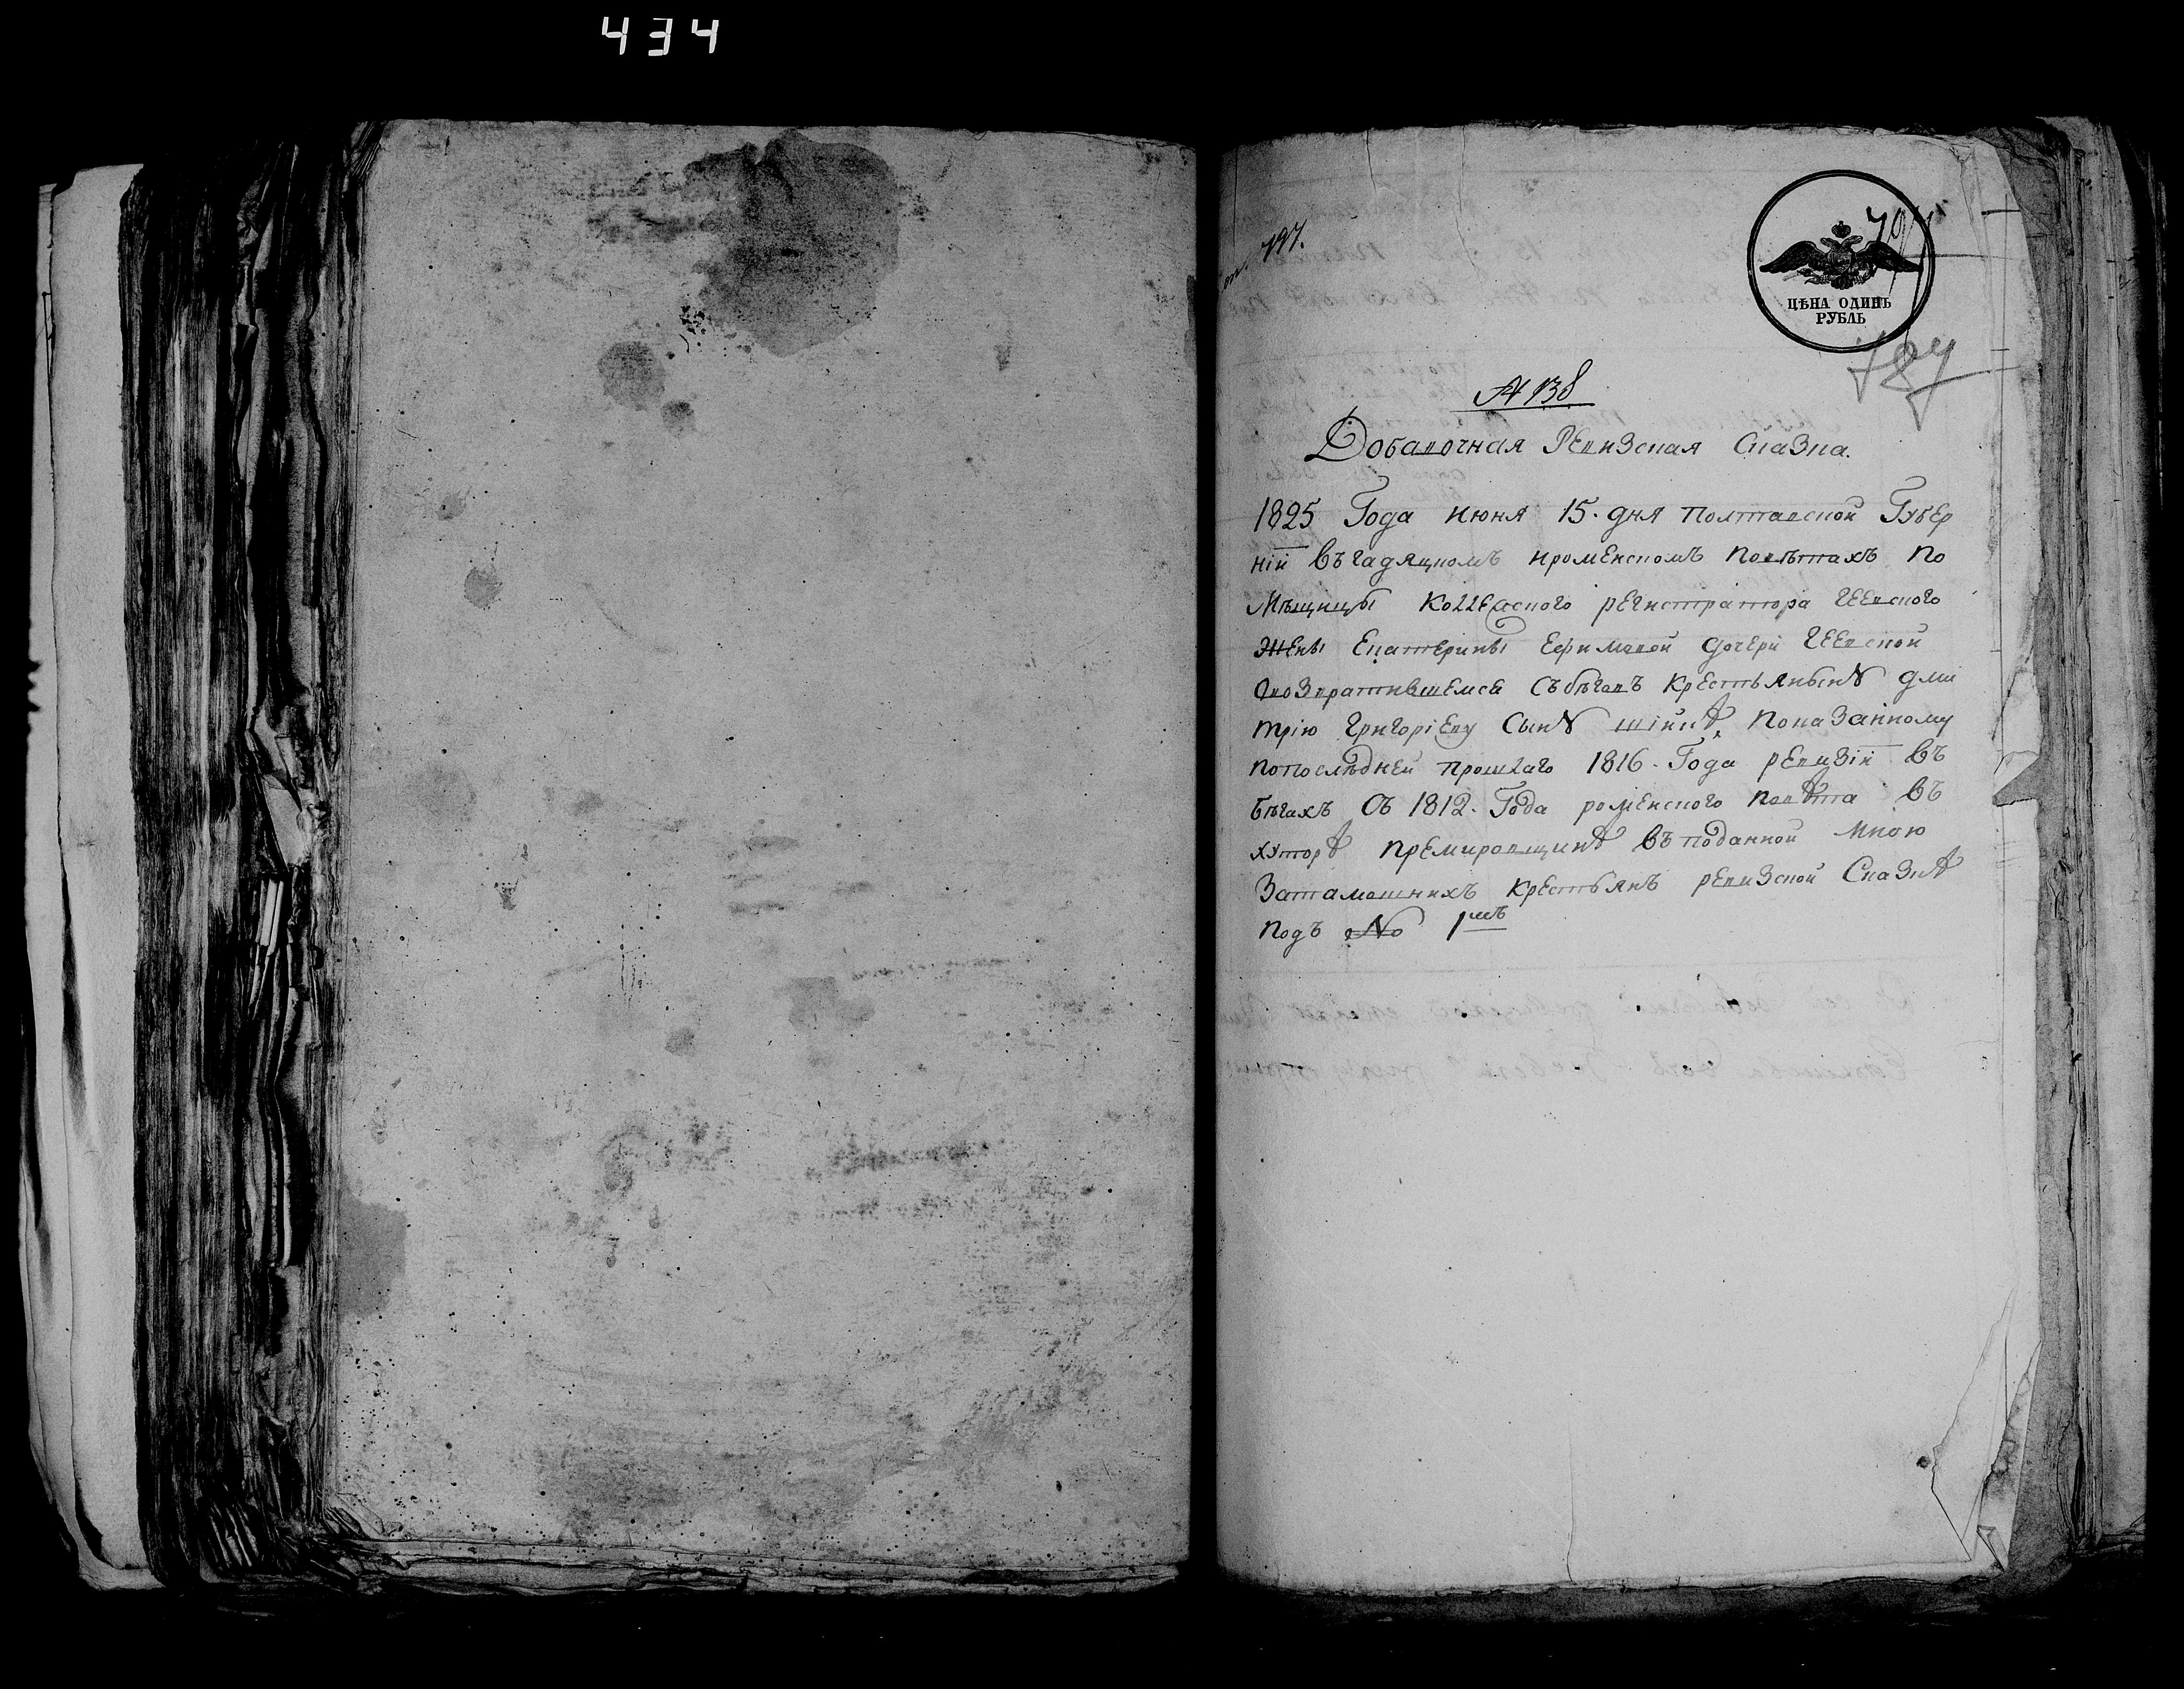 434
797.
ЦѢНА ОДИНЪ
РУБЛЬ
№ 138
Добавочная Ревизская Сказка.
1825 Года июня 15. дня Полтавской Губер
ніи въ гадяцкомъ и роменскомъ Поветахъ По
мѣщицы Коллежского регистратора Геевского
жены Екатерины Ефимовой дочери Геевской
О возвратившемся съ беговъ Крестьянынѣ Дми
трію Григоріеву сынѣ Показанному
по последней прошлаго 1816. Года ревизіи въ
бегахъ Съ 1812. Года роменского Поветѣ въ
хуторѣ Премировщинѣ въ поданной мною
За тамошнихъ крестьянъ ревизской Сказкѣ
подъ №о 1мъ